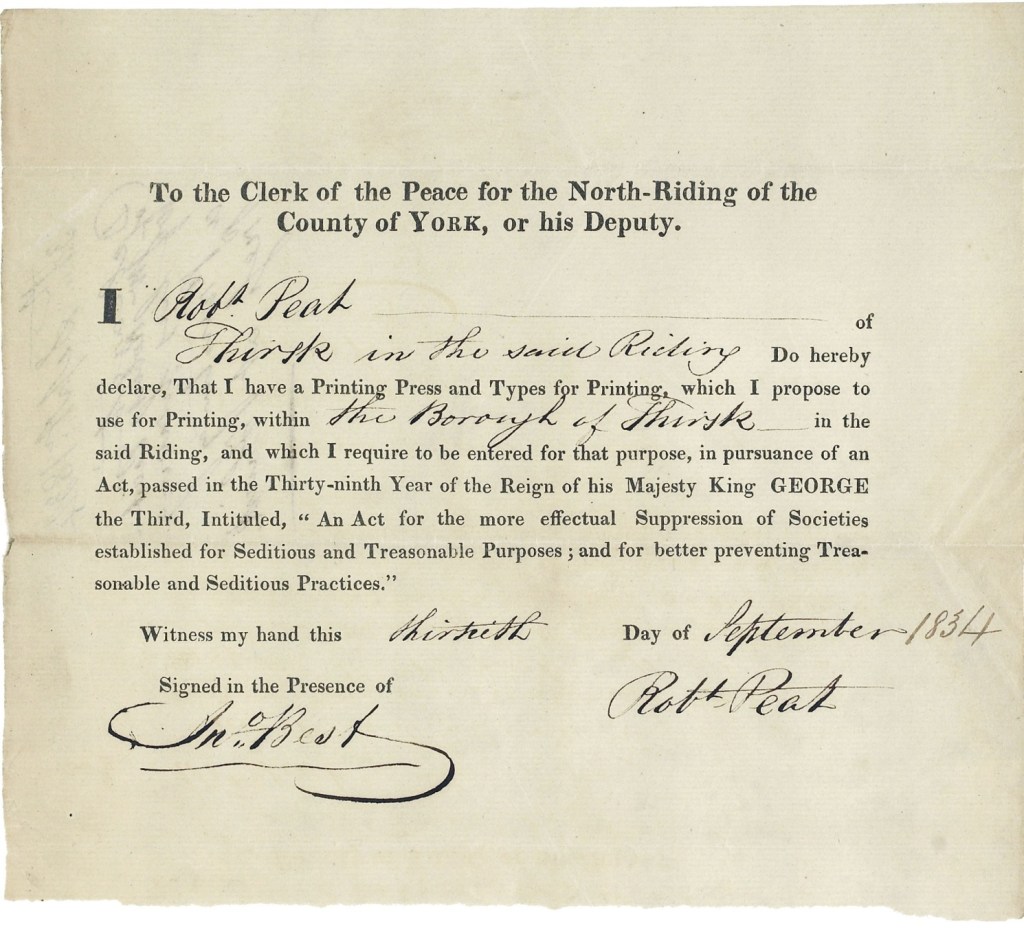 To the Clerk of the Peace for the North-Riding of the
County of YORK, or his Deputy.
I Robt. Peat of
Thirsk in the said Riding Do hereby
declare, That I have a Printing Press and Types for Printing, which I propose to
use for Printing, within the Borough of Thirsk in the
said Riding, and which I require to be entered for that purpose, in pursuance of an
Act, passed in the Thirty-ninth Year of the Reign of his Majesty King GEORGE
the Third, Intituled, “ An Act for the more effectual Suppression of Societies
established for Seditious and Treasonable Purposes ; and for better preventing Trea-
sonable and Seditious Practices.”
Witness my hand this thirtieth Day of September 1834
Signed in the Presence of
Robt. Peat
Jno. Best